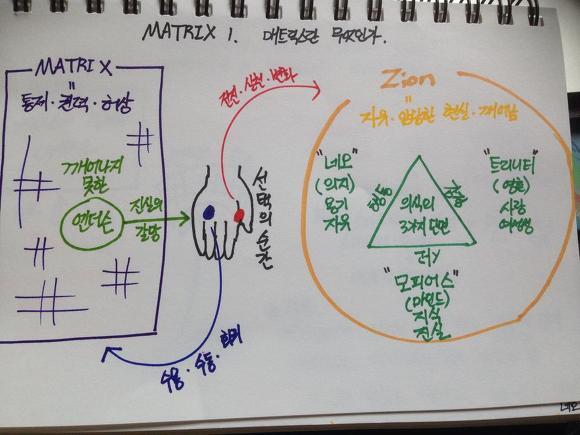 MATRIX 1. 매트릭스란 무엇인가.
MATRIX
"
통제·권력·허상
깨어나지
못한
앤더슨
진실의
갈망
선택의 순간
수용·수동·회귀
Zion
"
자유·암담한 현실·깨어남
"네오"
(의지)
용기
자유
행동
의식의
3가지 단면
"트리니티"
(영혼)
사랑
여성성
"모피어스"
(마인드)
지식
진실
네오